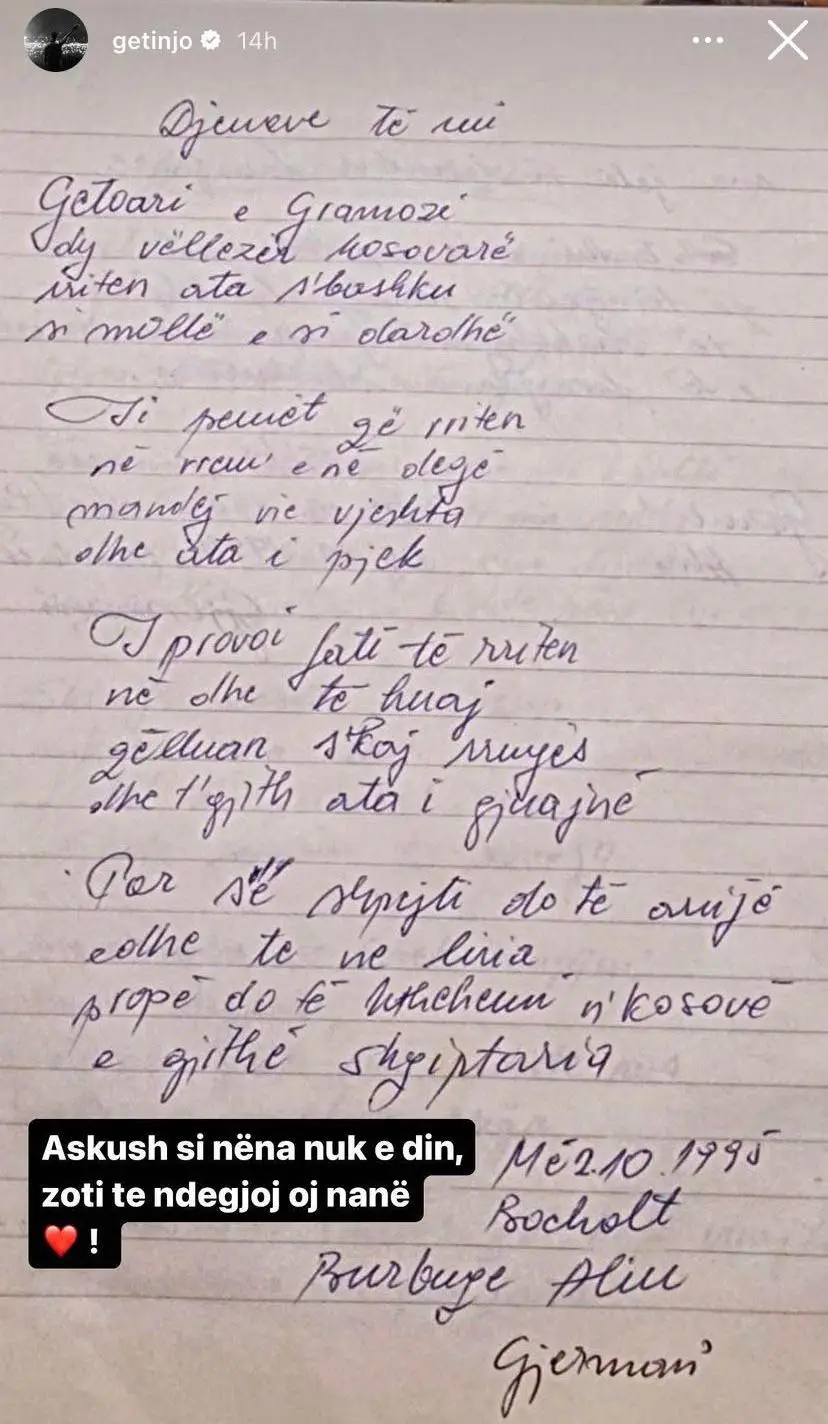 getinjo 14h
Djemve të mi
Getoari e Gramozi
dy vëllezër kosovarë
rriten ata s'bashku
si mollë e si dardhë
Si pemët që rriten
në rrem' e në degë
mandej vie vjeshta
dhe ata i pjek
I provoi fati të rriten
në dhe të huaj
qëlluan s'kaj rrugës
dhe t'gjith ata i gjuajnë
Por së shpejti do të arrijë
edhe te ne liria
propë do të kthehemi n'kosovë
e gjithë shqiptaria
Më 2.10.1995
Bocholt
Burbuqe Aliu
Gjermani
Askush si nëna nuk e din,
zoti te ndegjoj oj nanë
❤️ !